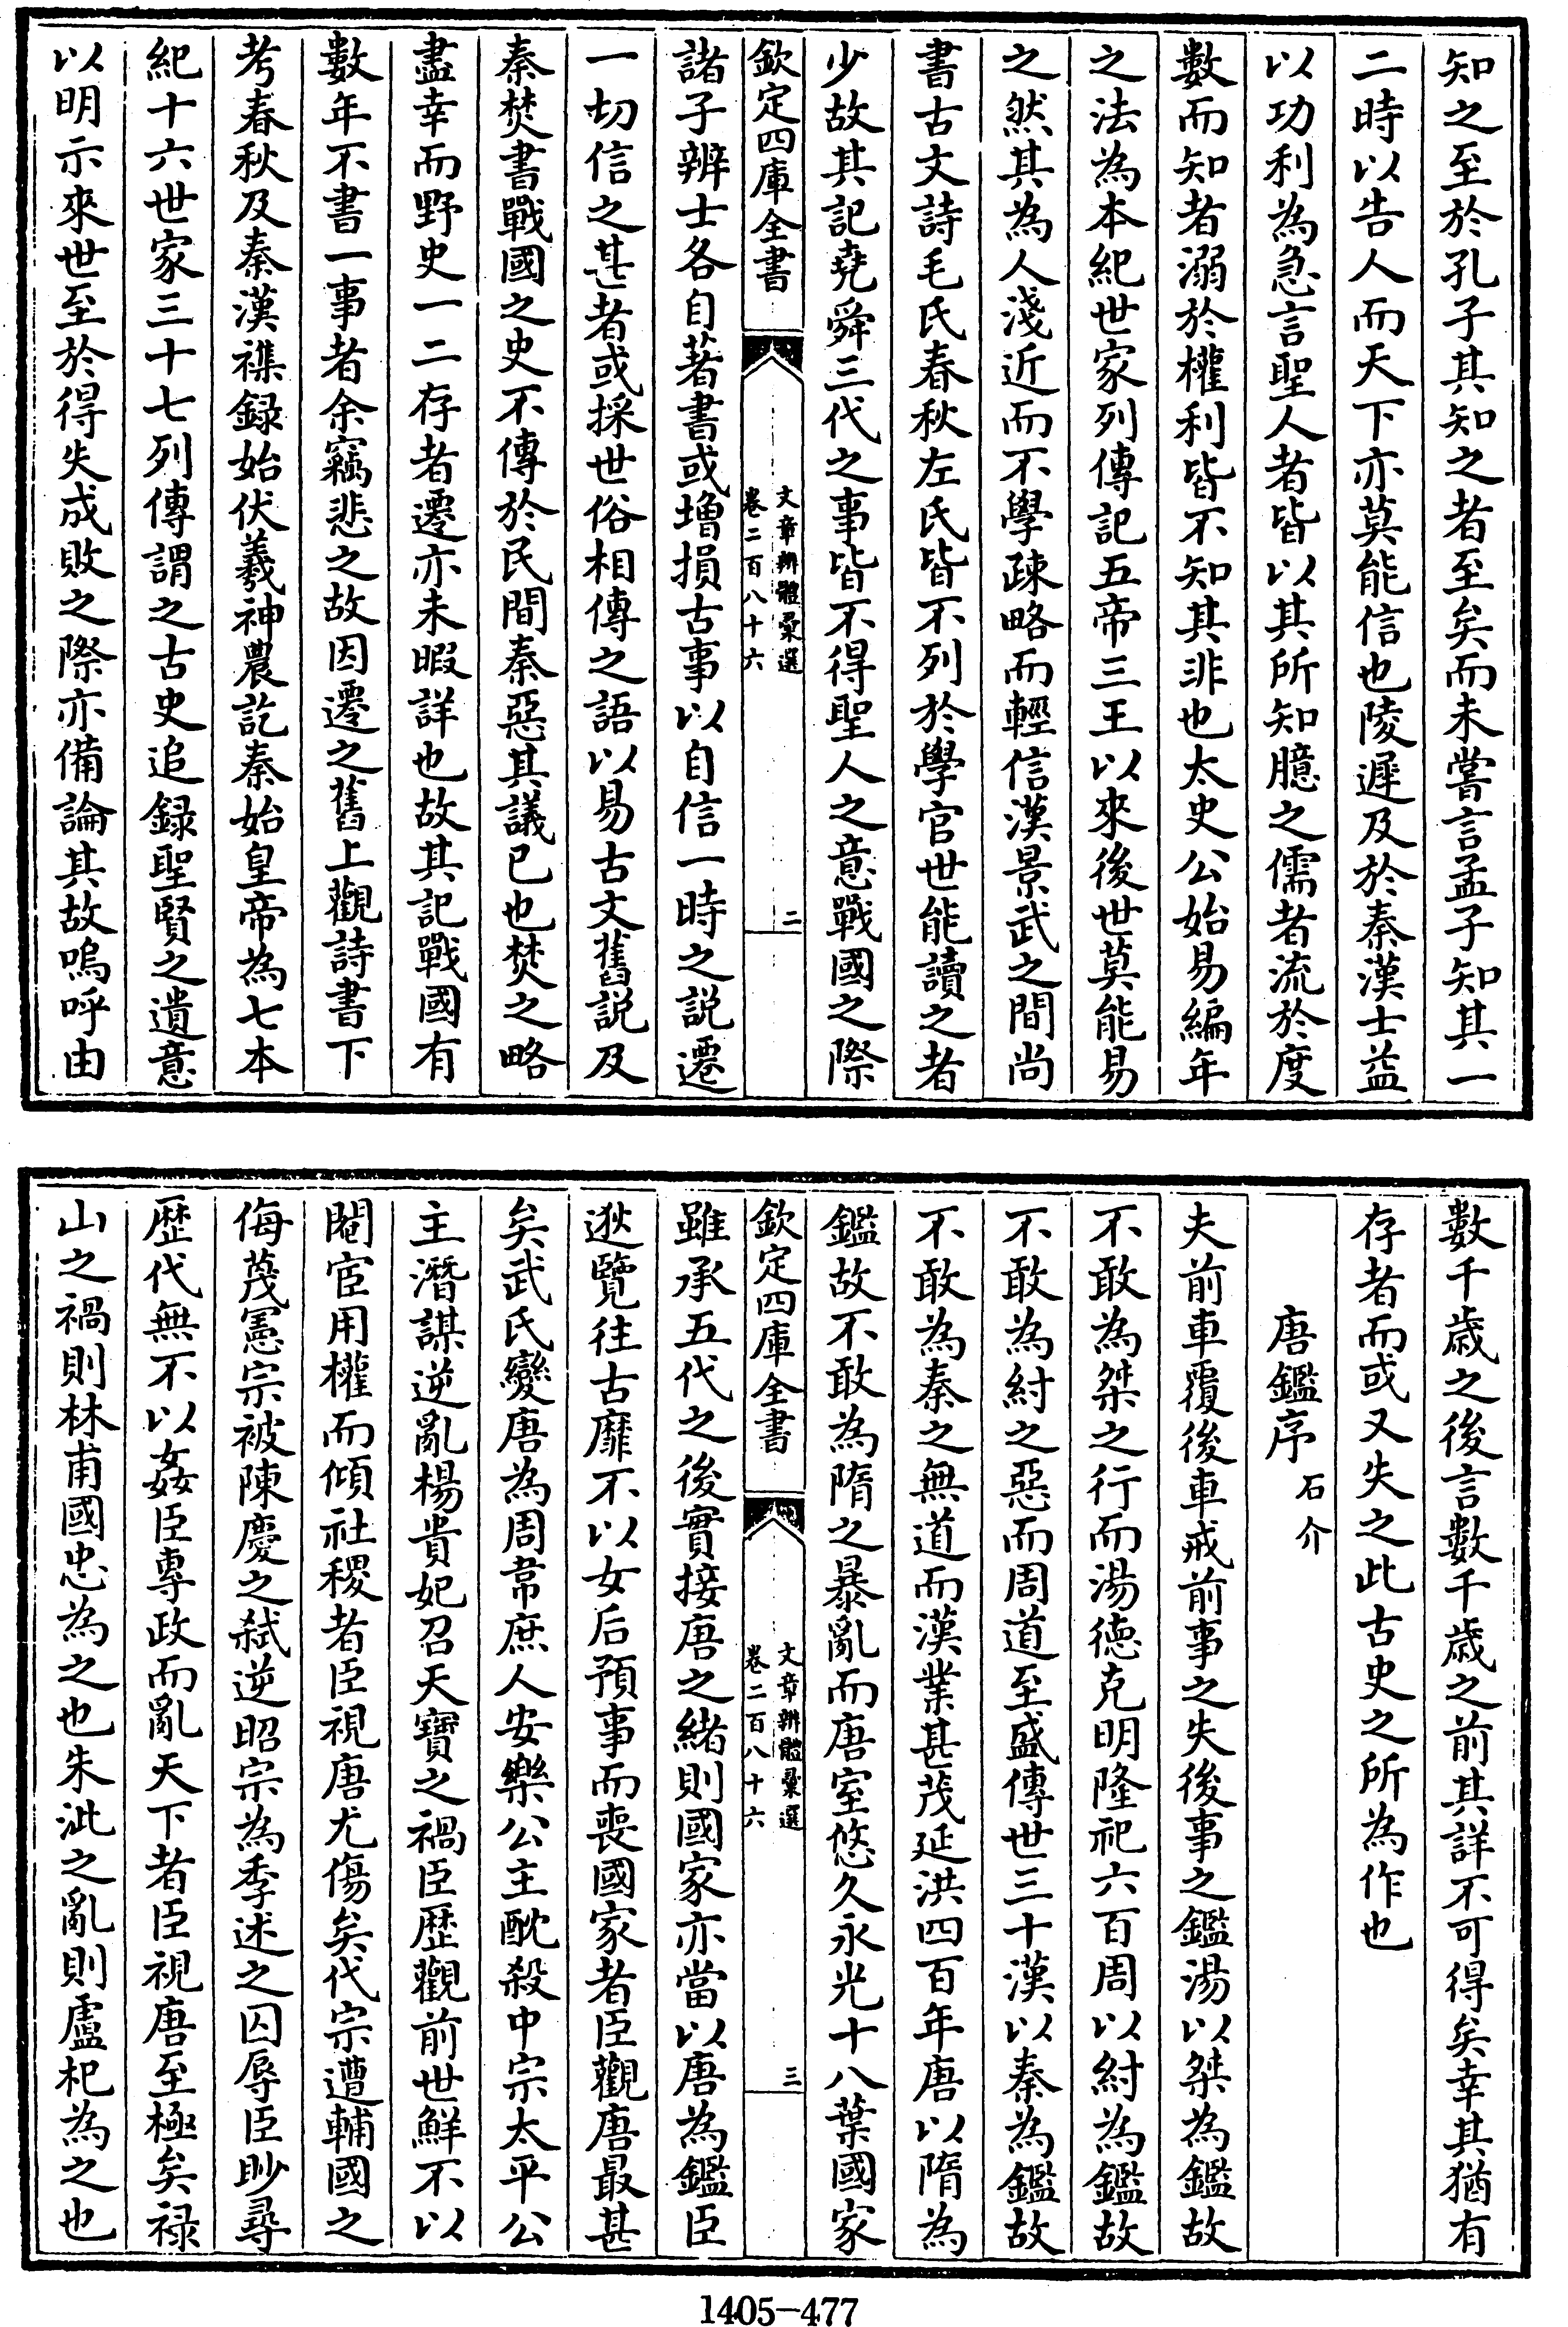 知之至於孔子其知之者至矣而未嘗言孟子知其一
二時以告人而天下亦莫能信也陵遲及於秦漢士益
以功利為急言聖人者皆以其所知臆之儒者流於度
數而知者溺於權利皆不知其非也太史公始易編年
之法為本紀世家列傳記五帝三王以來後世莫能易
之然其為人淺近而不學疎略而輕信漢景武之間尚
書古文詩毛氏春秋左氏皆不列於學官世能讀之者
少故其記堯舜三代之事皆不得聖人之意戰國之際
欽定四庫全書
文章辨體彚選
卷二百八十六
二
諸子辨士各自著書或增損古事以自信一時之説遷
一切信之甚者或採世俗相傳之語以易古文舊説及
秦焚書戰國之史不傳於民間秦惡其議已也焚之略
盡幸而野史一二存者遷亦未暇詳也故其記戰國有
數年不書一事者余竊悲之故因遷之舊上觀詩書下
考春秋及秦漢襍録始伏羲神農訖秦始皇帝為七本
紀十六世家三十七列傳謂之古史追録聖賢之遺意
以明示來世至於得失成敗之際亦備論其故嗚呼由
數千歲之後言數千歲之前其詳不可得矣幸其猶有
存者而或又失之此古史之所為作也
唐鑑序 石介
夫前車覆後車戒前事之失後事之鑑湯以桀為鑑故
不敢為桀之行而湯德克明隆祀六百周以紂為鑑故
不敢為紂之惡而周道至盛傳世三十漢以秦為鑑故
不敢為秦之無道而漢業甚茂延洪四百年唐以隋為
鑑故不敢為隋之暴亂而唐室悠久永光十八葉國家
欽定四庫全書
文章辨體彚選
卷二百八十六
三
雖承五代之後實接唐之緒則國家亦當以唐為鑑臣
逖覽往古靡不以女后預事而喪國家者臣觀唐最甚
矣武氏變唐為周韋庶人安樂公主酖殺中宗太平公
主潛謀逆亂楊貴妃召天寶之禍臣歷觀前世鮮不以
閹宦用權而傾社稷者臣視唐尤傷矣代宗遭輔國之
侮蔑憲宗被陳慶之弑逆昭宗為季述之囚辱臣眇尋
歷代無不以姦臣專政而亂天下者臣視唐至極矣禄
山之禍則林甫國忠為之也朱泚之亂則盧杞為之也
1405-477